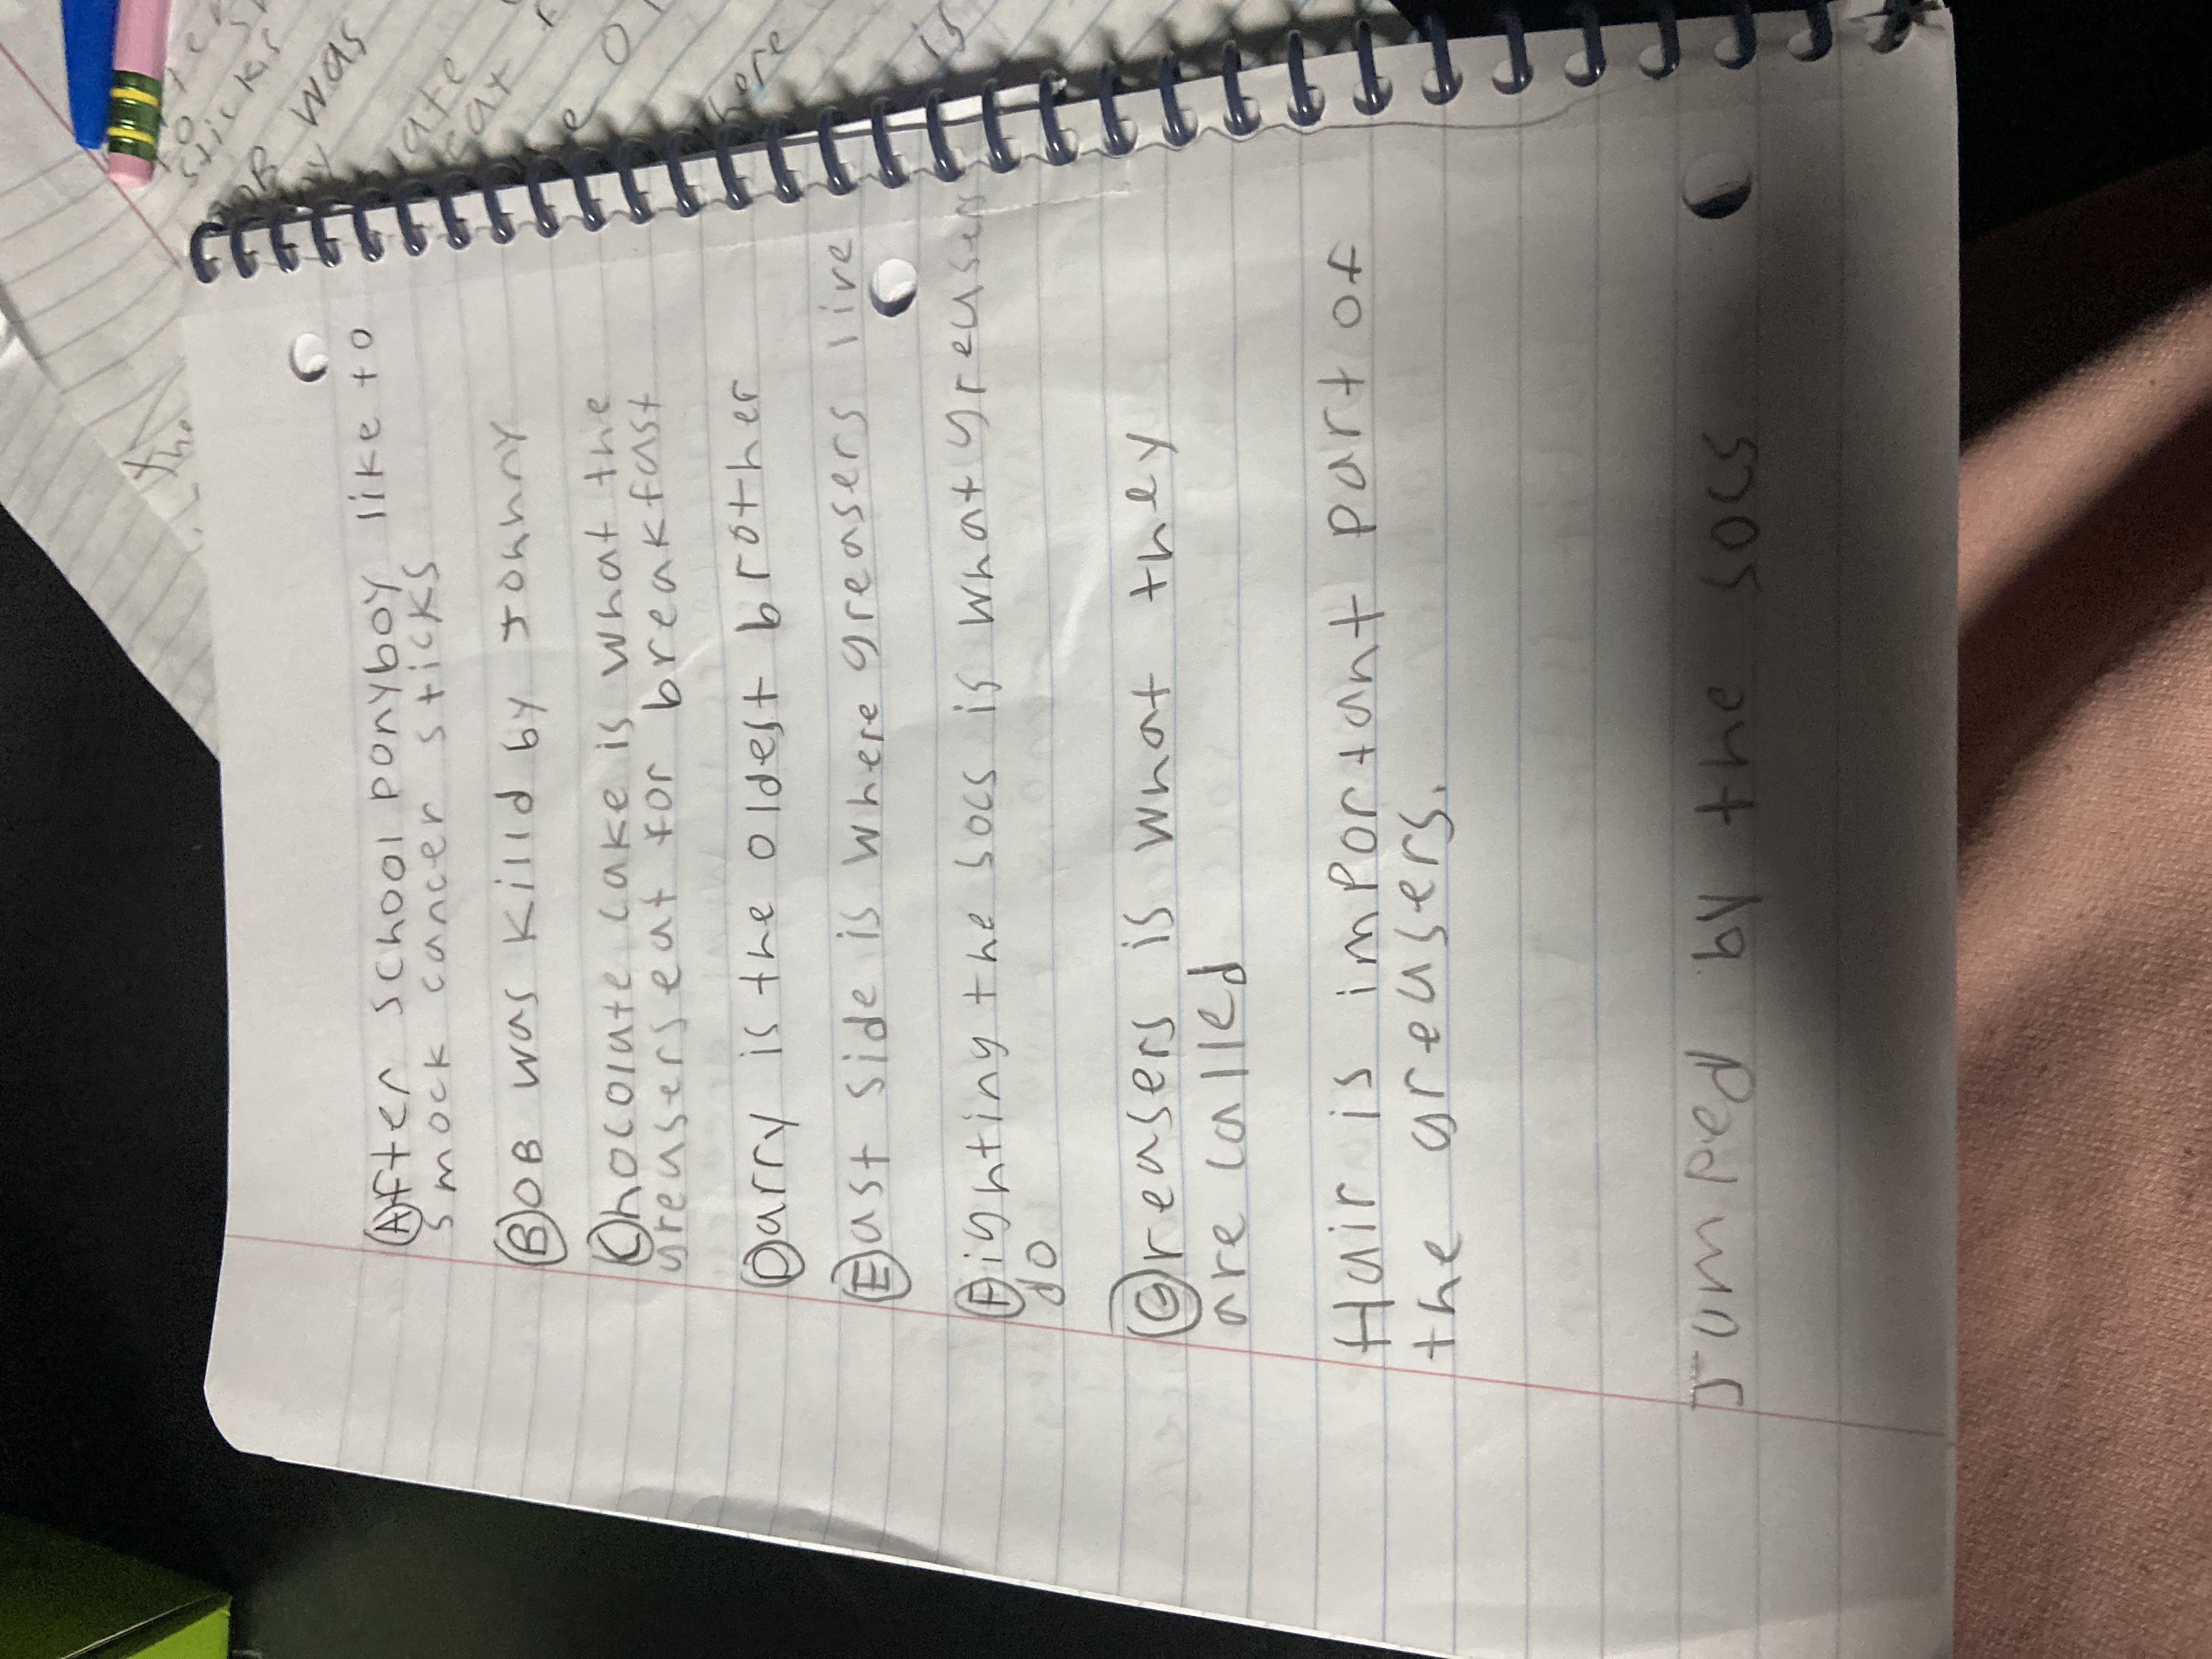 After school ponyboy like to
smock cancer sticks
BoB was killd by Johnny
Chocolate cake is what the
greasers eat for breakfast
Darry is the oldest brother
East side is where greasers live
Fighting the socs is what greasers
do
Greasers is what they
are called
Hair is important part of
the greasers.
Jumped by the socs
was
here
is
the